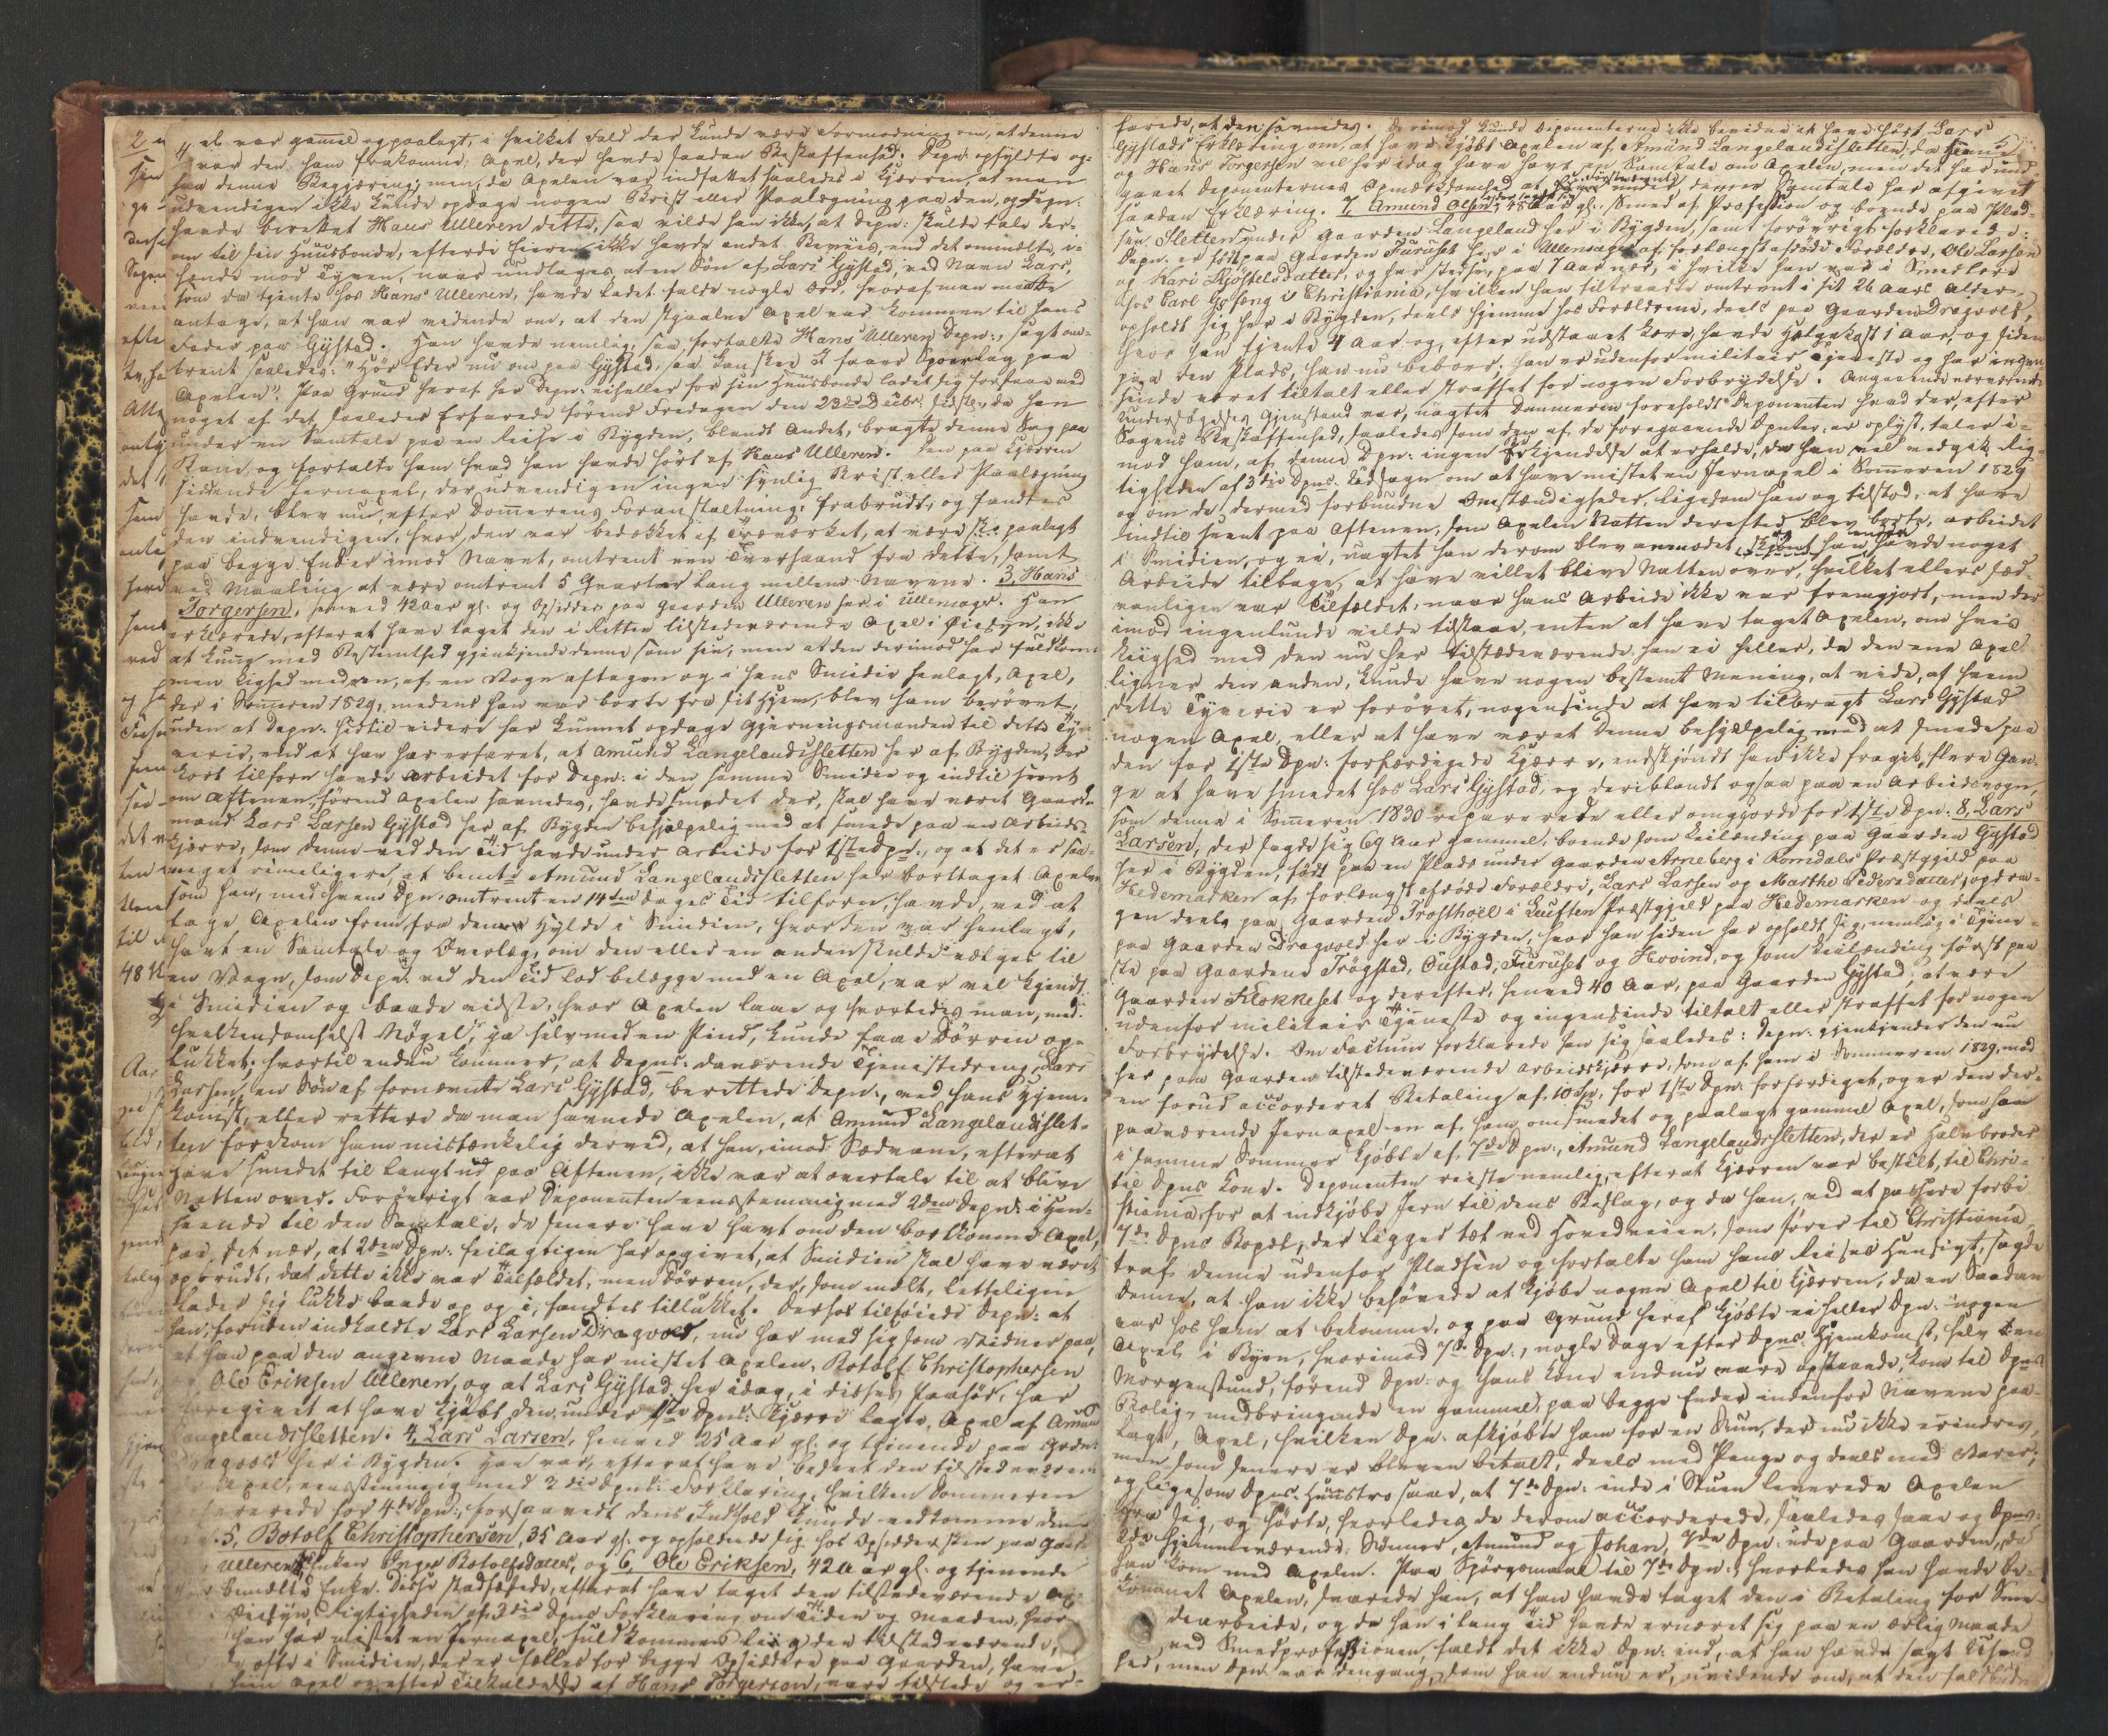 el. var gamel og paalagt, i hvilket Fald der kunde være Formodning om, at denne
var den ham frakomne Axel, der havde saadan Beskaffenhed. Depn: opfyldte og-
saa denne Begjæring; men, da Axelen var indfattet saaledes i Kjærren, at man
udvendigen ikke kunde opdage nogen Brist eller Paalægning paa den, og Depn:
havde berettet Hans Ulleren dette, saa vilde han ikke, at Depn: skulde tale der-
om til sin Huusbonde, efterdi Eieren ikke havde andet Beviis, end det ommeldte, i-
hende mod Tyven, naar undtages at en Søn af Lars Gystad, ved Navn Lars,
som da tjente hos Hans Ulleren, havde ladet falde nogle Ord, hvoraf man maatte
antage, at han var vidende om, at den stjaalne Axel var kommen til hans
Fader paa Gystad. Han havde nemlig, saa fortalte Hans Ulleren Depn:, sagt om-
trent saaledes: "Hør Eder nu om paa Gystad, saa kanskee I faaer Spoerlag paa
Axelen". Paa Grund heraf har Depn: ei heller for sin Huusbonde ladet sig forstaae med
noget af det saaledes Erfarede førend Fredagen den 23de Decbr. sidstl., da han
under en Samtale paa en Reise i Bygden, blandt Andet, bragte denne Sag paa
Bane og fortalte ham hvad han havde hørt af Hans Ulleren. Den paa Kjærren
siddende Jernaxel, der udvendigen ingen synlig Brist eller Paalægning
havde, blev nu, efter Dommerens Foranstaltning, frabrudt, og fandtes
den indvendigen, hvor den var bedækket af Træværket, at være paalagt
paa begge Ender imod Navet, omtrent een Tværhaand fra dette, samt
ved Maaling at være omtrent 5 Qvarter lang mellem Navene. 3, Hans
Torgersen, henved 42 Aar gl. og Opsidder paa Gaarden Ulleren her i Ullensager. Han
erklærede, efterat have taget den i Retten tilstedeværende Axel i Øiesyn, ikke
at kunne med Bestemthed gjenkjende denne som sin, men at den derimod har fuldkom-
men Lighed med en, af en Vogn aftagen og i hans Smidie henlagt, Axel,
der i Sommeren 1829, medens han var borte fra sit Hjem, blev ham berøvet,
uden at Depn: hidtil videre har kunnet opdage Gjerningsmanden til dette Ty-
verie, end at han har erfaret, at Amund Langelandsletten her af Bygden, der
kort tilforn havde arbeidet for Depn: i den samme Smidie og indtil seent
om Aftenen, førend Axelen savnedes, havde smedet der, skal have været Gaard-
mand Lars Larsen Gystad her af Bygden behjælpelig med at smede paa en Arbeids-
kjærre, som denne ved den Tid havde under Arbeide for 1ste Depn., og at det er saa-
meget rimeligere, at bemte Amund Langelandsletten har borttaget Axelen
som han, med hvem Dpn: omtrent en 14ten Dages Tid tilforn, havde, ved at
tage Axelen frem fra den Hylde i Smidien, hvor den var henlagt,
havt en Samtale og Overlæg, om den eller en anden skulde vælges til
en Vogn, som Depn: ved den Tid lod belægge med en Axel, var vel kjendt
i Smidien og baade vidste, hvor Axelen laae og hvorledes man, med
hvilkensomhelst Nøgel, ja selv med en Pind, kunde faae Dørren op-
lukket; hvortil endnu kommer, at Depns: daværende Tjenestedreng, Lars
Larsen, en Søn af fornævnte Lars Gystad, berettede Depn:, ved hans Hjem-
komst, eller rettere da man savnede Axelen, at Amund Langelandslet-
ten forekom ham mistænkelig derved, at han, imod Sædvane, efterat
have smedet til langt ud paa Aftenen, ikke var at overtale til at blive
Natten over. Forøvrigt var Deponenten eensstemmig med 2den Depn: i Hen-
seende til den Samtale, de senere have havt om den bortkomne Axel,
paa det nær, at 2den Dpn: feilagtigen har opgivet, at Smidien skal have været
opbrudt, da dette ikke var Tilfældet, men Dørren, der, som meldt, letteligen
lader sig lukke baade op og i, fandtes tillukket. Derhos tilføiede Depn: at
han, foruden indkaldte Lars Larsen Dragvold, nu har med sig som Vidner paa,
at han paa den angivne Maade har mistet Axelen, Botolf Christophersen
og Ole Eriksen Ulleren, og at Lars Gystad her idag, i disses Paahør, har
foregivet at have kjøbt den under 1ste Dpns: Kjærre lagte, Axel af Amund
Langelandsletten. 4, Lars Larsen, henved 25 Aar gl. og tjenende paa Grdn:
Dragvold her i Bygden. Han var, efterat have beseet den tilstedeværende
Axel, eensstemmig med 3die Dpns: Forklaring, hvilken Dommeren
for 4de Dpn:, forsaavidt dens Indhold kunde vedkomme denne
5, Botolf Christophersen, 35 Aar gl. og opholdende sig hos Opsiddersken paa Gaard
Ulleren, Enken Inger Botolfsdatter, og 6, Ole Eriksen, 42 Aar gl. og tjenende
bemældte Enke. Disse stadfæstede, efterat have taget den tilstedeværende Ax-
Øiesyn, Rigtigheden af 3die Dpns Forklaring om Tiden og Maaden, hvor-
han har mistet en Jernaxel, fuldkommen liig den tilstedeværende,
de ofte i Smidien, der er fælles for begge Opsiddere paa Gaarden, have
sin Axel og efter Tilkaldelse af Hans Torgersen, vare tilstede og er-
farede, at den savnedes. Derimod kunde Deponenterne ikke bevidne at have hørt Lars
Gystads Erklæring om, at have kjøbt Axelen af Amund Langelandsletten, da
og Hans Torgersen vel her idag have havt en Samtale om Axelen, men det har und-
gaaet Deponenternes Opmærksomhed, at Førstnævnte under denne Samtale har afgivet
saadan Erklæring. 7, Amund Olsen, 48 Aar gl., Smed af Profession og boende paa Plad-
sen Sletten under Gaarden Langeland her i Bygden, samt forøvrigt forklarede:
Depn: er født paa Gaarden Furuset her i Ullensager af forlængst afdøde Forældre, Ole Larsen
og Kari Kjøstelsdatter, og har stedse, paa 7 Aar nær, i hvilke han var i Smedlære
hos Carl Gr i Christiania, hvilken han tiltraadte omtrent i sit 26 Aars Alder,
opholdt sig her i Bygden, deels hjemme hos Forældrene, deels paa Gaarden Dragvold,
hvor han tjente 4 Aar og, efter udstaaet Lære, havde 1 Aar, og siden
paa den Plads, han nu beboer; han er udenfor militair Tjeneste og har ingen-
sinde været tiltalt eller straffet for nogen Forbrydelse. Angaaende nærværende
Undersøgelses Gjenstand var, uagtet Dommeren foreholdt Deponenten hvad der, efter
Sagens Beskaffenhed, saaledes som den af de foregaaende Dpnter: er oplyst, taler i-
mod ham, af denne Dpn: ingen Erkjendelse at erholde, da han vel vedgik Rig-
tigheden af 3die Dpns: Udsagn om at have mistet en Jernaxel i Sommeren 1829
og om de dermed forbundne Omstændigheder, ligesom han og tilstod, at have
indtil seent paa Aftenen, som Axelen Natten derefter blev borte, arbeidet
i Smidien, og ei, uagtet han derom blev anmodet og skjønt han endnu havde noget
Arbeide tilbage, at have villet blive Natten over, hvilket ellers sæd-
vanligen var Tilfældet, naar hans Arbeide ikke var fremgjort, men der-
imod ingenlunde vilde tilstaae, enten at have taget Axelen, om hvis
Liighed med den nu her tilstedeværende han ei heller, da den ene Axel
ligner den anden, kunde have nogen bestemt Mening, at vide, af hvem
dette Tyverie er forøvet, nogensinde at have tilbragt Lars Gystad
nogen Axel, eller at have været denne behjælpelig med at smede paa
den for 1ste Dpn: forfærdigede Kjærre, endskjøndt han ikke fragik, flere Gan-
ge at have smedet hos Lars Gystad, og deriblandt ogsaa paa en Arbeidsvogn,
som denne i Sommeren 1830 reparerede eller omgjorde for 1ste Dpn: 8, Lars
Larsen, der sagde sig 69 Aar gammel, boende som Leilænding paa Gaarden Gystad
her i Bygden, født paa en Plads under Gaarden Arneberg i Romdals Præstegjeld paa
Hedemarken af forlængst afdøde Forældre, Lars Larsen og Marthe Pedersdatter, opdra-
gen deels paa Gaarden Trosthoel i Leuften Præstegjeld paa Hedemarken og deels
paa Gaarden Dragvold her i Bygden, hvor han siden har opholdt sig, nemlig i Tjene-
ste paa Gaardene Trøgstad, Onstad, Furuset og Hovind, og som Leilænding først paa
Gaarden Klokkeset og derefter, henved 40 Aar, paa Gaarden Gystad; at være
udenfor militair Tjeneste og ingensinde tiltalt eller straffet for nogen
Forbrydelse. Om Factum forklarede han sig saaledes: Depn: gjenkjender den nu
her paa Gaarden tilstedeværende Arbeidskjærre, som af ham i Sommeren 1829, mod
en forud accorderet Betaling af 10 Spd., for 1ste Dpn: forfærdiget, og er den der-
paaværende Jernaxel en af ham omsmedet og paalagt gammel Axel, som han
i samme Sommer kjøbte af 7de Dpn:, Amund Langelandsletten, der er Halvbroder
til Dpns Kone. Deponenten reiste nemlig, efterat Kjærren var bestilt, til Chri-
stiania, for at indkjøbe Jern til dens Beslag, og da han, ved at passere forbi
7de Dpns Bopæl, der ligger tæt ved Hovedveien, som fører til Christiania,
traf denne udenfor Pladsen og fortalte ham hans Reises Hensigt, sagde
denne, at han ikke behøvede at kjøbe nogen Axel til Kjærren, da en Saadan
var hos ham at bekomme, og paa Grund heraf kjøbte ei heller Dpn: nogen
Axel i Byen, hvorimod 7de Dpn:, nogle Dage efter Dpns: Hjemkomst, selv
Morgenstund, førend Dpn: og hans Kone endnu vare opstaaede, kom til Dpns
Bolig, medbringende en gammel, paa begge Ender indenfor Navene paa-
lagt, Axel, hvilken Dpn: afkjøbte ham for en Sum, der nu ikke erindres,
men som senere er bleven betalt, deels med Penge og deels med Varer;
og ligesom Dpns: Huustro saae, at 7de Dpn: inde i Stuen leverede Axelen
fra sig, og hørte, hvorledes de derom accorderede, saaledes saae og Dpns:
2de hjemmeværende Sønner, Amund og Johan, 7de Dpn: ude paa Gaarden, da
han kom med Axelen. Paa Spørgsmaal til 7de Dpn:, hvorledes han havde be-
kommet Axelen, svarede han, at han havde taget den i Betaling for Sme-
dearbeide, og da han i lang Tid havde ernæret sig paa en ærlig Maade
ved Smedprofessionen, faldt det ikke Dpn: ind, at han havde sagt Usand-
hed, men Dpn: var dengang, som han endnu er, uvidende om, at den